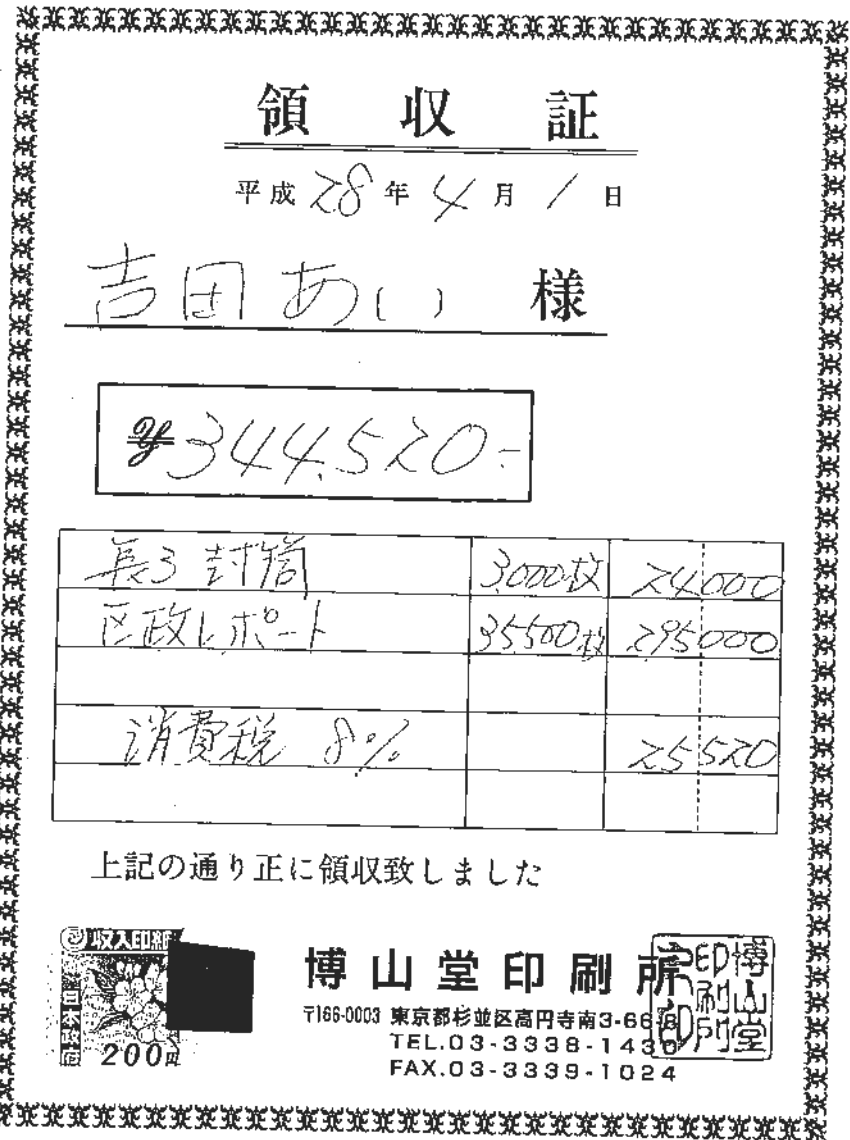 領収証
平成28年4月1日
吉田あい 様
¥344,520-
長3封筒 3,000枚 24,000
区政レポート 35,500枚 295,000
消費税 8% 25,520
上記の通り正に領収致しました
収入印紙
日本政府
200円
博山堂印刷所
〒166-0003 東京都杉並区高円寺南3-66-8
TEL.03-3338-1430
FAX.03-3339-1024
博山堂
印刷所